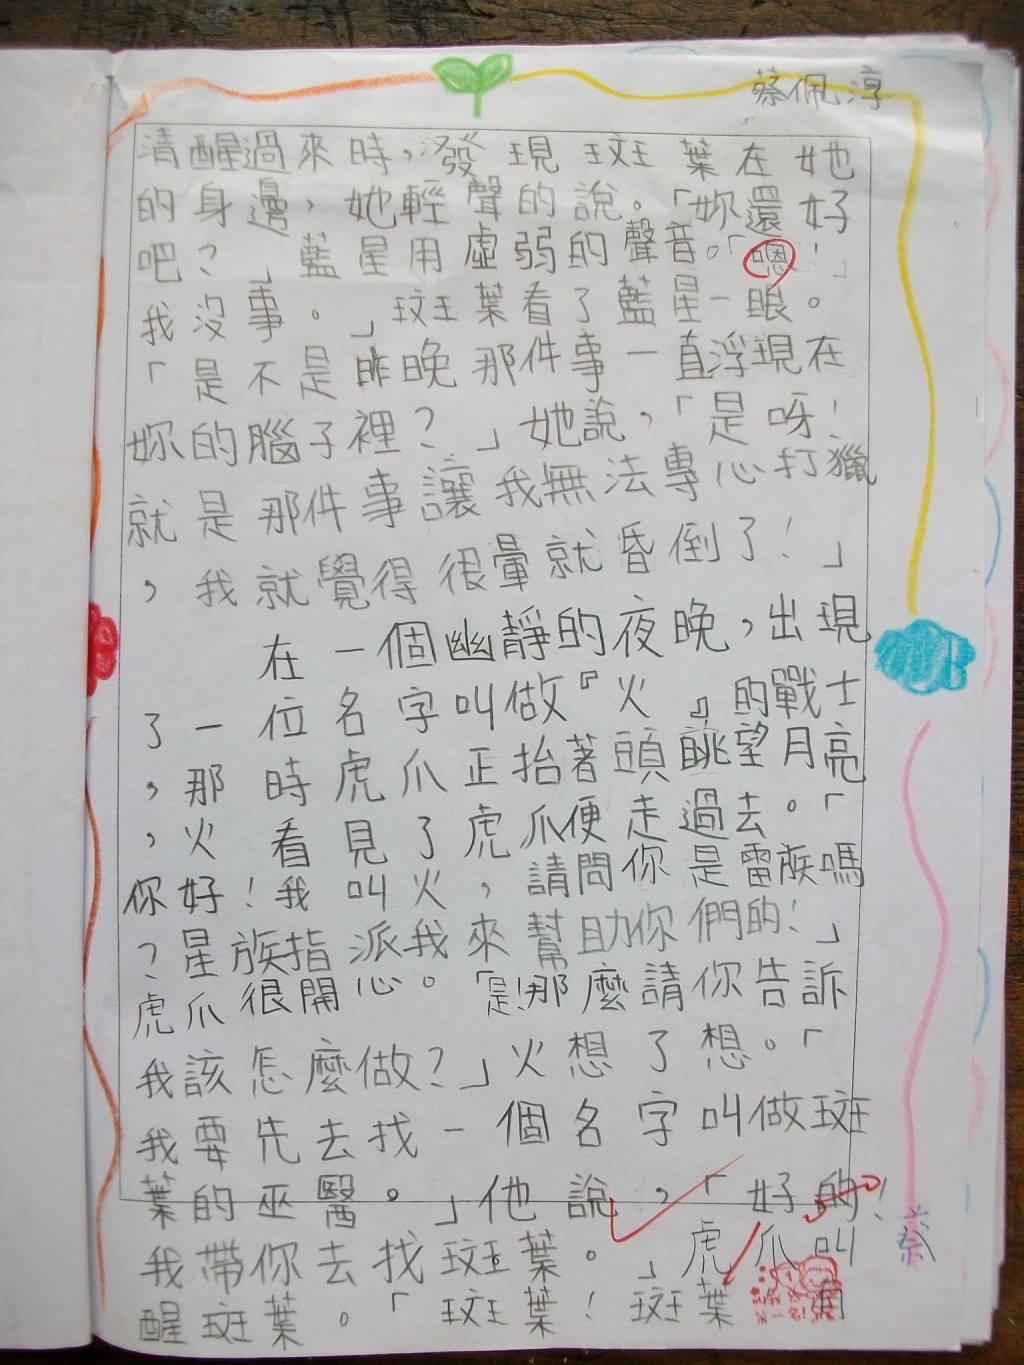 蔡佩淳
清醒過來時，發現斑葉在她
的身邊，她輕聲的說。「妳還好
吧？」藍星用虛弱的聲音。「嗯！」
我沒事。」斑葉看了藍星一眼。
「是不是昨晚那件事一直浮現在
妳的腦子裡？」她說，「是呀！
就是那件事讓我無法專心打獵
，我就覺得很暈就昏倒了！」
在一個幽靜的夜晚，出現
了一位名字叫做『火』的戰士
，那時虎爪正抬著頭眺望月亮
，火看見了虎爪便走過去。「
你好！我叫火，請問你是雷族嗎
？星族指派我來幫助你們的！」
虎爪很開心。「是！那麼請你告訴
我該怎麼做？」火想了想。「
我要先去找一個名字叫做斑
葉的巫醫。」他說，「好的！
我帶你去找斑葉。」虎爪叫
醒斑葉。「斑葉！斑葉
蔡